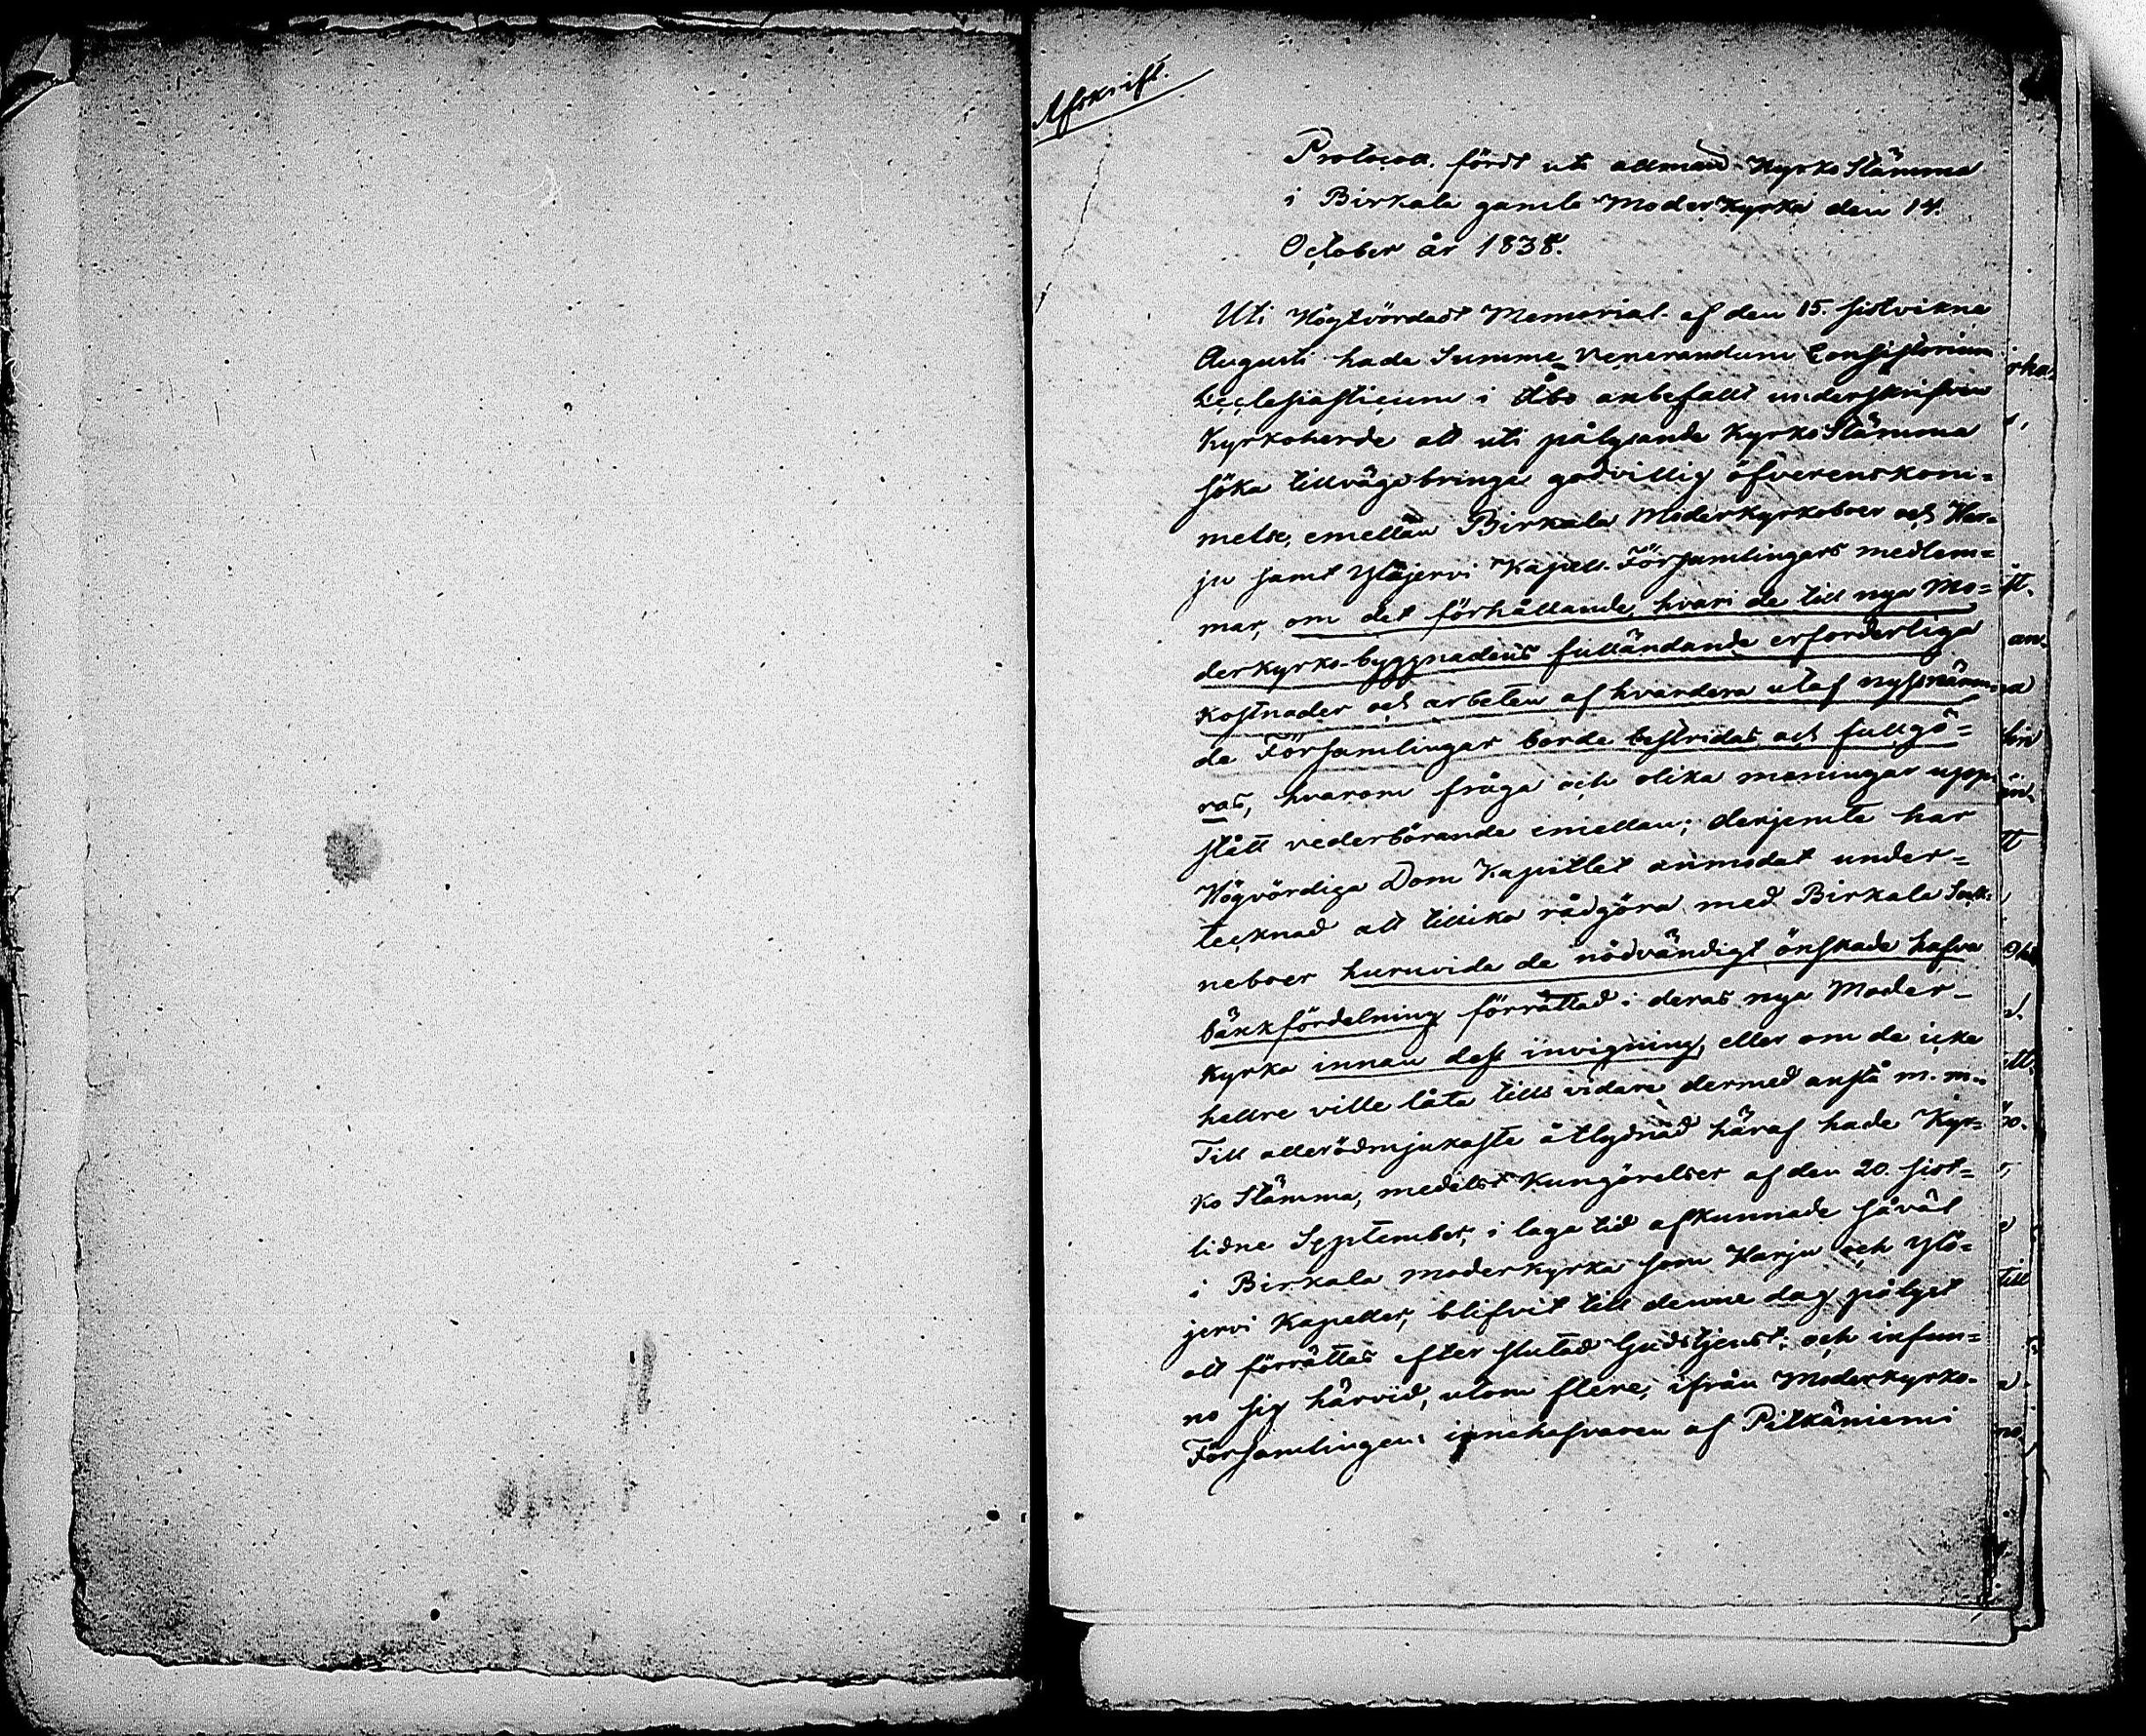 Afskrift.
Protocoll fördt uti allmän Kyrko Stämma
i Birkala gamla Moder Kyrka den 14.
October år 1838.
Uti Högtvördadt Memorial af den 15. sistvikna
Augusti hade Summe Venerandum Consistorium
Ecclesiasticum i Åbo anbefallt underskrifven
Kyrkoherde att uti pålysande Kyrko Stämma
söka tillvägabringa godvillig öfverenskom=
melse, emellan Birkala Moderkyrkoboer och Har=
ju samt Ylöjervi Kapell-Församlingars medlem=
mar, om det förhållande, hvari de till nya Mo=
derkyrko-byggnadens fulländande erforderliga
kostnader och arbeten af hvardera utaf nyssnämn=
da Församlingar borde bestridas och fullgö=
ras, hvarom fråga och olika meningar upp=
stått vederbörande emellan; derjemte har
Högvördiga Dom Kapitlet anmodat under=
tecknad att tillika rådgöra med Birkala Sock=
neboer huruvida de nödvändigt önskade hafva
bänkfördelning förrättad i deras nya Moder=
kyrka innan dess invigning, eller om de icke
hellre ville låta tills vidare dermed anstå m. m.
Till allerödmjukaste åtlydnad häraf hade Kyr=
ko Stämma, medelst Kungörelser af den 20. sist=
lidne September, i laga tid afkunnade såväl
i Birkala moderkyrka som Harju och Ylö=
jervi Kapeller, blifvit till denne dag pålyst
att förrättas efter slutad Gudstjenst; och infun=
no sig härvid, utom flere, ifrån Moderkyrko-
Församlingen: innehafvaren af Pitkäniemi